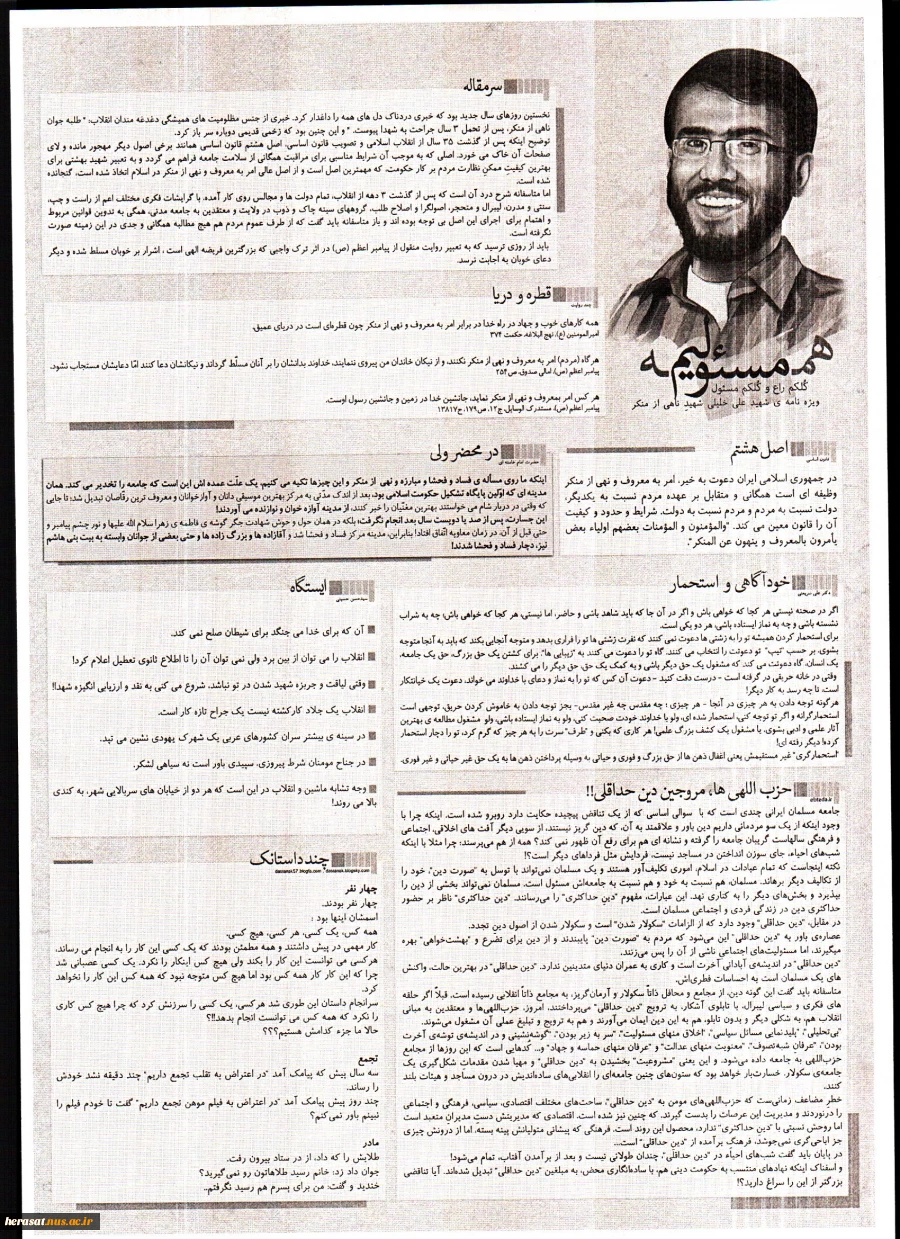 سرمقاله
نخستین روزهای سال جدید بود که خبری دردناک دل های همه را داغدار کرد. خبری از جنس مظلومیت های همیشگی دغدغه مندان انقلاب: " طلبه جوان
ناهی از منکر، پس از تحمل ۳ سال جراحت به شهدا پیوست. " و این چنین بود که زخمی قدیمی دوباره سر باز کرد.
توضیح اینکه پس از گذشت ۳۵ سال از انقلاب اسلامی و تصویب قانون اساسی، اصل هشتم قانون اساسی همانند برخی اصول دیگر مهجور مانده و لای
صفحات آن خاک می خورد. اصلی که به موجب آن شرایط مناسبی برای مراقبت همگانی از سلامت جامعه فراهم می گردد و به تعبیر شهید بهشتی برای
بهترین کیفیت ممکن نظارت مردم بر کار حکومت، که مهمترین اصل است و از اصل عالی امر به معروف و نهی از منکر در اسلام اتخاذ شده است، گنجانده
شده است.
اما متاسفانه شرح درد آن است که پس از گذشت ۳ دهه از انقلاب، تمام دولت ها و مجالس روی کار آمده، با گرایشات فکری مختلف اعم از راست و چپ،
سنتی و مدرن، لیبرال و متحجر، اصولگرا و اصلاح طلب، گروههای سینه چاک و ذوب در ولایت و معتقدین به جامعه مدنی، همگی به تدوین قوانین مربوط
و اهتمام برای اجرای این اصل بی توجه بوده اند و باز متاسفانه باید گفت که از طرف عموم مردم هم هیچ مطالبه همگانی و جدی در این زمینه صورت
نگرفته است.
باید از روزی ترسید که به تعبیر روایت منقول از پیامبر اعظم (ص) در اثر ترک واجبی که بزرگترین فریضه الهی است ، اشرار بر خوبان مسلط شده و دیگر
دعای خوبان به اجابت نرسد.
همه مسئولیم
کُلکم راع و کُلکم مسئول
ویژه نامه ی شهید علی خلیلی شهیدِ ناهی از منکر
قطره و دریا
چند روایت
همه کارهای خوب و جهاد در راه خدا در برابر امر به معروف و نهی از منکر چون قطره‌ای است در دریای عمیق.
امیرالمومنین (ع)، نهج البلاغه، حکمت ۳۷۴
هر گاه (مردم) امر به معروف و نهی از منکر نکنند، و از نیکان خاندان من پیروی ننمایند، خداوند بدانشان را بر آنان مسلّط گرداند و نیکانشان دعا کنند امّا دعایشان مستجاب نشود.
پیامبر اعظم (ص)، امالی صدوق، ص۲۵۴
هر کس امر بمعروف و نهی از منکر نماید، جانشین خدا در زمین و جانشین رسول اوست.
پیامبر اعظم (ص)، مستدرک الوسایل، ج۱۲، ص۱۷۹، ح۱۳۸۱۷
اصل هشتم
قانون اساسی
در جمهوری اسلامی ایران دعوت به خیر، امر به معروف و نهی از منکر
وظیفه ای است همگانی و متقابل بر عهده مردم نسبت به یکدیگر،
دولت نسبت به مردم و مردم نسبت به دولت. شرایط و حدود و کیفیت
آن را قانون معین می کند. "والمؤمنون و المؤمنات بعضهم اولیاء بعض
یأمرون بالمعروف و ینهون عن المنکر".
در محضر ولی
حضرت امام خامنه ای
اینکه ما روی مسأله ی فساد و فحشا و مبارزه و نهی از منکر و این چیزها تکیه می کنیم، یک علّت عمده اش این است که جامعه را تخدیر می کند. همان
مدینه ای که اوّلین پایگاه تشکیل حکومت اسلامی بود، بعد از اندک مدّتی به مرکز بهترین موسیقی دانان و آوازخوانان و معروف ترین رقّاصان تبدیل شد؛ تا جایی
که وقتی در دربار شام می خواستند بهترین مغنّیان را خبر کنند، از مدینه آوازه خوان و نوازنده می آوردند!
این جسارت، پس از صد یا دویست سال بعد انجام نگرفت؛ بلکه در همان حول و حوش شهادت جگر گوشه ی فاطمه ی زهرا سلام الله علیها و نور چشم پیامبر و
حتی قبل از آن، در زمان معاویه اتّفاق افتاد! بنابراین، مدینه مرکز فساد و فحشا شد و آقازاده ها و بزرگ زاده ها و حتی بعضی از جوانان وابسته به بیت بنی هاشم
نیز، دچار فساد و فحشا شدند!
خودآگاهی و استحمار
دکتر علی شریعتی
اگر در صحنه نیستی هر کجا که خواهی باش و اگر در آن جا که باید شاهد باشی و حاضر، اما نیستی، هر کجا که خواهی باش، چه به شراب
نشسته باشی و چه به نماز ایستاده باشی، هر دو یکی است.
برای استحمار کردن همیشه تو را به زشتی ها دعوت نمی کنند که نفرت زشتی ها تو را فراری بدهد و متوجه آنجایی بکند که باید به آنجا متوجه
بشوی، بر حسب "تیپ" تو دعوتت را انتخاب می کنند. گاه تو را دعوت می کنند به "زیبایی ها". برای کشتن یک حق بزرگ، حق یک جامعه،
یک انسان، گاه دعوتت می کند که مشغول یک حق دیگر باشی و به کمک یک حق، حق دیگر را می کشند.
وقتی در خانه حریقی در گرفته است - درست دقت کنید - دعوت آن کس که تو را به نماز و دعای با خداوند می خواند، دعوت یک خیانتکار
است، تا چه رسد به کار دیگر!
هرگونه توجه دادن به هر چیزی در آنجا - هر چیزی ؛ چه مقدس چه غیر مقدس- بجز توجه دادن به خاموش کردن حریق، توجهی است
استحمارگرانه و اگر تو توجه کنی، استحمار شده ای، ولو با خداوند خودت صحبت کنی، ولو به نماز ایستاده باشی، ولو مشغول مطالعه ی بهترین
آثار علمی و ادبی بشوی، یا مشغول یک کشف بزرگ علمی! هر کاری که بکنی و "طرف" سرت را به هر چیز که گرم کرد، تو را دچار استحمار
کرده! دیگر رفته ای!
"استحمارگری" غیر مستقیمش یعنی اغفال ذهن ها از حق بزرگ و فوری و حیاتی به وسیله پرداختن ذهن ها به یک حق غیر حیاتی و غیر فوری.
ایستگاه
سیدحسن حسینی
آن که برای خدا می جنگد برای شیطان صلح نمی کند.
انقلاب را می توان از بین برد ولی نمی توان آن را تا اطلاع ثانوی تعطیل اعلام کرد!
وقتی لیاقت و جربزه شهید شدن در تو نباشد، شروع می کنی به نقد و ارزیابی انگیزه شهدا!
انقلاب یک جلاد کارکشته نیست یک جراح تازه کار است.
در سینه ی بیشتر سران کشورهای عربی یک شهرک یهودی نشین می تپد.
در جناح مومنان شرط پیروزی، سپیدی باور است نه سیاهی لشکر.
وجه تشابه ماشین و انقلاب در این است که هر دو از خیابان های سربالایی شهر، به کندی
بالا می روند!
حزب اللهی ها، مروجین دین حداقلی!!
جامعه مسلمان ایرانی چندی است که با سوالی اساسی که از یک تناقض پیچیده حکایت دارد روبرو شده است. اینکه چرا با
وجود اینکه از یک سو مردمانی داریم دین باور و علاقمند به آن، که دین گریز نیستند، از سویی دیگر آفت های اخلاقی، اجتماعی
و فرهنگی سالهاست گریبان جامعه را گرفته و نشانه ای هم برای رفع آن ظهور نمی کند؟ همه از هم می‌پرسند: چرا مثلا با اینکه
شب‌های احیاء، جای سوزن انداختن در مساجد نیست، فردایش مثل فرداهای دیگر است؟!
نکته اینجاست که تمام عبادات در اسلام، اموری تکلیف‌آور هستند و یک مسلمان نمی‌تواند با توسل به "صورت دین"، خود را
از تکالیف دیگر برهاند. مسلمان، هم نسبت به خود و هم نسبت به جامعه‌اش مسئول است. مسلمان نمی‌تواند بخشی از دین را
بپذیرد و بخش‌های دیگر را به کناری نهد. این عبارات، مفهوم "دین حداکثری" را می‌رسانند. "دین حداکثری" ناظر بر حضور
حداکثری دین در زندگی فردی و اجتماعی مسلمان است.
در مقابل، "دین حداقلی" وجود دارد که از الزامات "سکولار شدن" است و سکولار شدن از اصول دین تجدد.
عصاره‌ی باور به "دین حداقلی" این می‌شود که مردم به "صورت دین" پایبندند و از دین برای تضرع و "بهشت‌خواهی" بهره
میگیرند، اما مسئولیت‌های اجتماعی ناشی از آن را پس می‌زنند.
"دین حداقلی" در اندیشه‌ی آبادانی آخرت است و کاری به عمران دنیای متدینین ندارد. "دین حداقلی" در بهترین حالت، واکنش
های یک مسلمان است به احساسات فطری‌اش.
متاسفانه باید گفت این گونه دین، از مجامع و محافل ذاتاً سکولار و آرمان‌گریز، به مجامع ذاتاً انقلابی رسیده است. قبلاً اگر حلقه
های فکری و سیاسی لیبرال، با تابلوی آشکار، به ترویج "دین حداقلی" می‌پرداختند، امروز، حزب‌اللهی‌ها و معتقدین به مبانی
انقلاب هم، به شکلی دیگر و بدون تابلو، هم به این دین ایمان می‌آورند و هم به ترویج و تبلیغ عملی آن مشغول می‌شوند.
"بی‌تحلیلی"، "پلیدنمایی مسائل سیاسی"، "اخلاق منهای مسئولیت"، "سر به زیر بودن"، "گوشه‌نشینی و در اندیشه‌ی توشه‌ی آخرت
بودن"، "عرفان شبه‌تصوف"، "معنویت منهای عدالت" و "عرفان منهای حماسه و جهاد" و... کُدهایی است که این روزها از مجامع
حزب‌اللهی به جامعه داده می‌شود. و این یعنی "مشروعیت" بخشیدن به "دین حداقلی" و مهیا شدن مقدمات شکل‌گیری یک
جامعه‌ی سکولار. خسارت‌بار خواهد بود که ستون‌های چنین جامعه‌ای را انقلابی‌های ساده‌اندیش در درون مساجد و هیئات بلند
کنند.
خطر مضاعف زمانی‌ست که حزب‌اللهی‌های مومن به "دین حداقلی"، ساحت‌های مختلف اقتصادی، سیاسی، فرهنگی و اجتماعی
را درنوردند و مدیریت این عرصات را بدست گیرند. که چنین نیز شده است. اقتصادی که مدیریتش دستِ مدیران متعبد است
اما روحش نسبتی با "دین حداکثری" ندارد، محصول این روند است. فرهنگی که پیشانی متولیانش پینه بسته، اما از درونش چیزی
جز اباحی‌گری نمی‌جوشد، فرهنگِ برآمده از "دین حداقلی" است...
در پایان باید گفت شب‌های احیاء در "دین حداقلی"، چندان طولانی نیست و بعد از برآمدن آفتاب، تمام می‌شود!
و اسفناک اینکه نهادهای منتسب به حکومت دینی هم، با ساده‌انگاری محض، به مبلغین "دین حداقلی" تبدیل شده‌اند. آیا تناقضی
بزرگتر از این را سراغ دارید؟!
چند داستانک
چهار نفر
چهار نفر بودند.
اسمشان اینها بود :
همه کس، یک کسی، هر کسی، هیچ کسی.
کار مهمی در پیش داشتند و همه مطمئن بودند که یک کسی این کار را به انجام می رساند،
هرکسی می توانست این کار را بکند ولی هیچ کس اینکار را نکرد. یک کسی عصبانی شد
چرا که این کار کار همه کس بود اما هیچ کس متوجه نبود که همه کس این کار را نخواهد
کرد.
سرانجام داستان این طوری شد هرکسی، یک کسی را سرزنش کرد که چرا هیچ کس کاری
را نکرد که همه کس می توانست انجام بدهد!!؟
حالا ما جزء کدامش هستیم؟؟؟
تجمع
سه سال پیش که پیامک آمد "در اعتراض به تقلب تجمع داریم" چند دقیقه نشد خودش
را رساند.
چند روز پیش پیامک آمد "در اعتراض به فیلم موهن تجمع داریم" گفت تا خودم فیلم را
نبینم باور نمی‌کنم؟
مادر
طلایش را که داد، از در ستاد بیرون رفت.
جوان داد زد: خانم رسید طلاهاتون رو نمی‌گیرید؟
خندید و گفت: من برای پسرم هم رسید نگرفتم..
herasat.nus.ac.ir